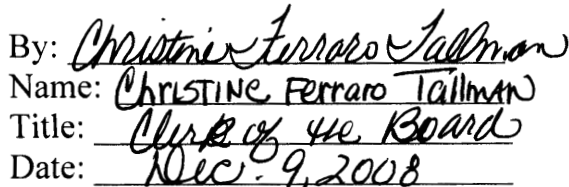 By: Christine Ferraro Tallman
Name: Christine Ferraro Tallman
Title: Clerk of the Board
Date: Dec. 9, 2008